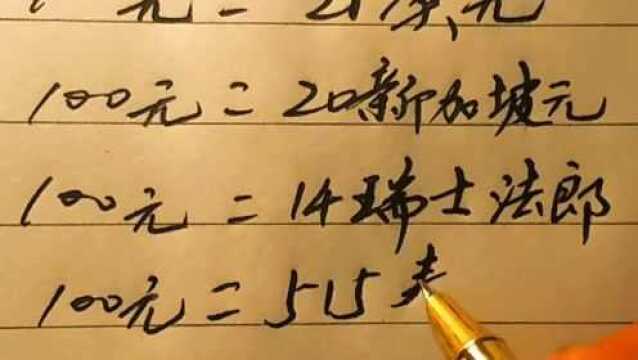 元=21澳元
100元=20新加坡元
100元=14瑞士法郎
100元=515